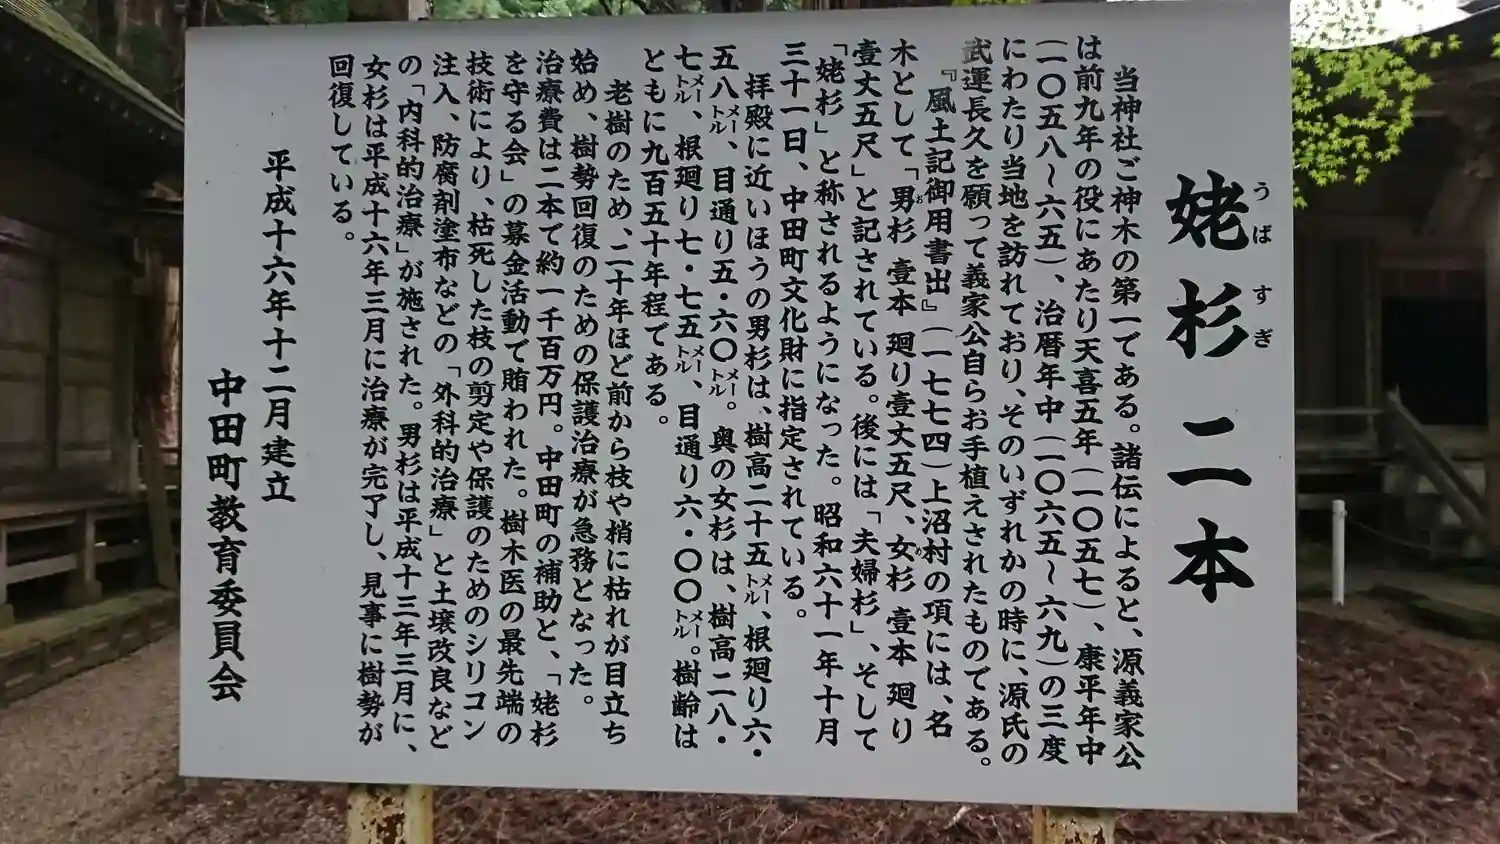 姥杉二本
うばすぎ
当神社ご神木の第一である。諸伝によると、源義家公
は前九年の役にあたり天喜五年（一〇五七）、康平年中
（一〇五八～六五）、治暦年中（一〇六五～六九）の三度
にわたり当地を訪れており、そのいずれかの時に、源氏の
武運長久を願って義家公自らお手植えされたものである。
『風土記御用書出』（一七七四）上沼村の項には、名
木として「男杉 壹本 廻り壹丈五尺、女杉 壹本 廻り
お
め
壹丈五尺」と記されている。後には「夫婦杉」、そして
「姥杉」と称されるようになった。昭和六十一年十月
三十一日、中田町文化財に指定されている。
拝殿に近いほうの男杉は、樹高二十五メートル、根廻り六・
五八メートル、目通り五・六〇メートル。奥の女杉は、樹高二八・
七メートル、根廻り七・七五メートル、目通り六・〇〇メートル。樹齢は
ともに九百五十年程である。
老樹のため、二十年ほど前から枝や梢に枯れが目立ち
始め、樹勢回復のための保護治療が急務となった。
治療費は二本で約一千百万円。中田町の補助と、「姥杉
を守る会」の募金活動で賄われた。樹木医の最先端の
技術により、枯死した枝の剪定や保護のためのシリコン
注入、防腐剤塗布などの「外科的治療」と土壌改良など
の「内科的治療」が施された。男杉は平成十三年三月に、
女杉は平成十六年三月に治療が完了し、見事に樹勢が
回復している。
平成十六年十二月建立
中田町教育委員会